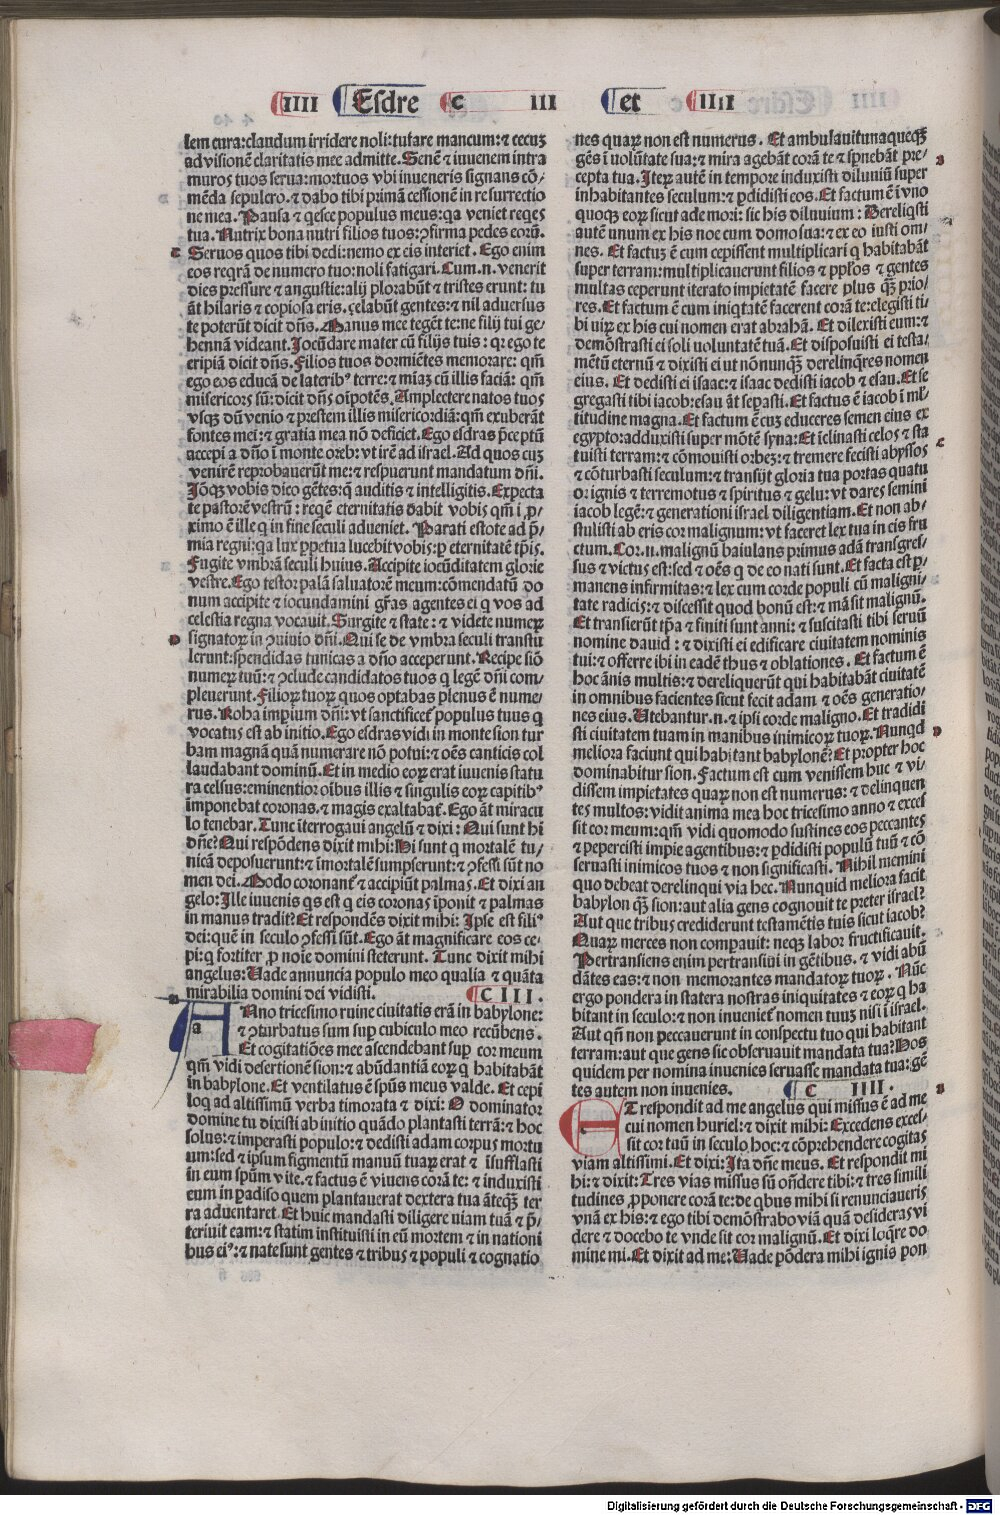 IIII Esdre C III et IIII
lem cura:claudum irridere noli:tutare mancum:⁊ cecuʒ
ad visionē claritatis mee admitte.Senē ⁊ iuuenem intra
muros tuos serua:mortuos vbi inueneris signans cō/
mēda sepulcro.⁊ dabo tibi primā cessionē in resurrectio
ne mea.Pausa ⁊ q̇esce populus meus:q̇a veniet req̇es
tua.Nutrix bona nutri filios tuos:ꝯfirma pedes eorū.
C Seruos quos tibi dedi:nemo ex eis interiet.Ego enim
eos reqrā de numero tuo:noli fatigari.Cum.n.venerit
dies pressure ⁊ angustie:alij plorabūt ⁊ tristes erunt: tu
āt hilaris ⁊ copiosa eris.celabūt gentes:⁊ nil aduersus
te poterūt dicit dn̄s.Manus mee tegēt te:ne filij tui ge/
hennā videant.Jocūdare mater cū filijs tuis: qꝛ ego te
eripiā dicit dn̄s.Filios tuos dormiētes memorare: qm̄
ego eos educā de laterib⁹ terre:⁊ mīaʒ cū illis faciā: qm̄
misericors sū:dicit dn̄s oīpotēs.Amplectere natos tuos
vsqʒ dū venio ⁊ prestem illis misericordiā:qm̄ exuberāt
fontes mei:⁊ gratia mea nō deficiet.Ego esdras p̄ceptū
accepi a dn̄o ī monte oreb:vt irē ad israel.Ad quos cuʒ
venirē reprobauerūt me:⁊ respuerunt mandatum dn̄i.
Jōqʒ vobis dico gētes:q̄ auditis ⁊ intelligitis.Expecta
te pastorē vestrū: requē eternitatis dabit vobis qm̄ ī ꝓ/
ximo ē ille q in fine seculi adueniet. Parati estote ad p̄/
mia regni:q̇a lux ꝑpetua lucebit vobis:ꝑ eternitatē tp̄is.
Fugite vmbrā seculi huius.Accipite iocūditatem glorie
vestre.Ego testor palā saluatorē meum:cōmendatū do
num accipite ⁊ iocundamini gr̄as agentes ei q vos ad
celestia regna vocauit.Surgite ⁊ state: ⁊ videte numeꝝ
D signatoꝝ in ꝯuiuio dn̄i.Qui se de vmbra seculi transtu
lerunt:splendidas tunicas a dn̄o acceperunt.Recipe siō
numeꝝ tuū:⁊ ꝯclude candidatos tuos q legē dn̄i com/
pleuerunt.Filioꝝ tuoꝝ quos optabas plenus ē nume/
rus.Roha imperium dn̄i:vt sanctificet̄ populus tuus q
vocatus est ab initio.Ego esdras vidi in monte sion tur
bam magnā quā numerare nō potui:⁊ oēs canticis col
laudabant dominū.Et in medio eoꝝ erat iuuenis statu
ra celsus:eminentior oībus illis ⁊ singulis eoꝝ capitib⁹
imponebat coronas.⁊ magis exaltabat̄.Ego āt miracu
lo tenebar.Tunc īterrogaui angelū ⁊ dixi: Qui sunt hi
dn̄e?Qui respōdens dixit mihi:Hi sunt q mortalē tu/
nicā deposuerunt:⁊ īmortalē sumpserunt:⁊ ꝯfessi sūt no
men dei.Modo coronant̄ ⁊ accipiūt palmas.Et dixi an
gelo:Ille iuuenis q̇s est q eis coronas īponit ⁊ palmas
in manus tradit?Et respondēs dixit mihi: Ipse est fili⁹
dei:quē in seculo ꝯfessi sūt.Ego āt magnificare eos ce/
pi:q fortiter ꝓ noīe domini steterunt. Tunc dixit mihi
angelus:Uade annuncia populo meo qualia ⁊ quāta
mirabilia domini dei vidisti. C III.
A Nno tricesimo ruine ciuitatis erā in babylone:
⁊ ꝯturbatus sum suꝑ cubiculo meo recūbens.
Et cogitatiōes mee ascendebant suꝑ cor meum
qm̄ vidi desertionē sion:⁊ abūdantiā eoꝝ q habitabāt
in babylone.Et ventilatus ē sp̄us meus valde. Et cepi
loq̇ ad altissimū verba timorata ⁊ dixi: O dominator
domine tu dixisti ab initio quādo plantasti terrā:⁊ hoc
solus:⁊ imperasti populo:⁊ dedisti adam corpus mortu
um:sed ⁊ ipsum figmentū manuū tuaꝝ erat ⁊ īsufflasti
in eum spūm vite.⁊ factus ē viuens corā te: ⁊ induxisti
eum in ꝑadiso quem plantauerat dextera tua āteqʒ̄ ter
ra aduentaret.Et huic mandasti diligere uiam tuā ⁊ p̄/
teriuit eam:⁊ statim instituisti in eū mortem ⁊ in nationi
bus ei⁹:⁊ nate sunt gentes ⁊ tribus ⁊ populi ⁊ cognatio
nes quaꝝ non est numerus. Et ambulauit unaqueqʒ
gēs ī uolūtate sua:⁊ mira agebāt corā te ⁊ sp̄nebāt pre/
B cepta tua.Iteꝝ autē in tempore induxisti diluuiū super
inhabitantes seculum:⁊ ꝑdidisti eos.Et factum ē ī vno
quoqʒ eoꝝ sicut ade mori: sic his diluuium: Dereliqsti
autē unum ex his noe cum domo sua:⁊ ex eo iusti om/
nes. Et factuʒ ē cum cepissent multiplicari q habitabāt
super terram:multiplicauerunt filios ⁊ pplōs ⁊ gentes
multas ceperunt iterato impietatē facere plus qʒ̄ prio/
res.Et factum ē cum iniq̇tatē facerent corā te:elegisti ti/
bi uiꝝ ex his cui nomen erat abrahā. Et dilexisti eum:⁊
demōstrasti ei soli uoluntatē tuā.Et disposuisti ei testa/
mētū eternū ⁊ dixisti ei ut nō nunqʒ̄ derelinq̄res nomen
eius. Et dedisti ei isaac:⁊ isaac dedisti iacob ⁊ esau.Et se
gregasti tibi iacob:esau āt sepasti.Et factus ē iacob ī ml̄
titudine magna.Et factum ē cuʒ educeres semen eius ex
egypto:adduxisti super mōtē syna:Et īclinasti celos ⁊ sta
C tuisti terram:⁊ cōmouisti orbeʒ:⁊ tremere fecisti abyssos
⁊ cōturbasti seculum:⁊ transijt gloria tua portas quatu
or ignis ⁊ terremotus ⁊ spiritus ⁊ gelu:vt dares semini
iacob legē:⁊ generationi israel diligentiam.Et non ab/
stulisti ab eris cor malignum:vt faceret lex tua in eis fru
ctum.Cor.n.malignū baiulans primus adā transgres/
sus ⁊ victus est:sed ⁊ oēs q de eo nati sunt.Et facta est ꝑ/
manens infirmitas:⁊ lex cum corde populi cū maligni/
tate radicis:⁊ discessit quod bonū est:⁊ māsit malignū.
Et transierūt tp̄a ⁊ finiti sunt anni: ⁊ suscitasti tibi seruū
nomine dauid: ⁊ dixisti ei edificare ciuitatem nominis
tui:⁊ offerre ibi in eadē thus ⁊ oblationes. Et factum ē
hoc ānis multis:⁊ dereliquerūt qui habitabāt ciuitatē
in omnibus facientes sicut fecit adam ⁊ oēs generatio/
nes eius.Utebantur.n.⁊ ipsi corde maligno.Et tradidi
sti ciuitatem tuam in manibus inimicoꝝ tuoꝝ.Nunqd D
meliora faciunt qui habitant babylonē?Et propter hoc
dominabitur sion.Factum est cum venissem huc ⁊ vi/
dissem impietates quaꝝ non est numerus:⁊ delinquen
tes multos:vidit anima mea hoc tricesimo anno ⁊ exces
sit cor meum:qm̄ vidi quomodo sustines eos peccantes
⁊ pepercisti impie agentibus:⁊ ꝑdidisti populū tuū ⁊ cō
seruasti inimicos tuos ⁊ non significasti. Nihil memini
quo debeat derelinqui via hec.Nunquid meliora facit
babylon qʒ̄ sion:aut alia gens cognouit te preter israel?
Aut que tribus crediderunt testamētis tuis sicut iacob?
Quaꝝ merces non comparuit:neqʒ labor fructificauit.
Pertransiens enim pertransiui in gētibus.⁊ vidi abū
dātes eas:⁊ non memorantes mandatoꝝ tuoꝝ. Nūc
ergo pondera in statera nostras iniquitates ⁊ eoꝝ q ha
bitant in seculo:⁊ non inueniet̄ nomen tuuʒ nisi ī israel.
Aut qn̄ non peccauerunt in conspectu tuo qui habitant
terram:aut que gens sic obseruauit mandata tua?Hos
quidem per nomina inuenies seruasse mandata tua:gē
tes autem non inuenies. C IIII.
A ET respondit ad me angelus qui missus ē ad me
cui nomen huriel:⁊ dixit mihi:Excedens exces/
sit cor tuū in seculo hoc:⁊ cōprehendere cogitas
viam altissimi.Et dixi:Ita dn̄e meus. Et respondit mi
hi:⁊ dixit:Tres vias missus sū ōndere tibi:⁊ tres simili
tudines ꝓponere corā te:de q̇bus mihi si renunciaueris
vnā ex his:⁊ ego tibi demōstrabo viā quā desideras vi
dere ⁊ docebo te vnde sit cor malignū.Et dixi loq̄re do
mine mi.Et dixit ad me:Uade pōdera mihi ignis pon
Digitalisierung gefördert durch die Deutsche Forschungsgemeinschaft - DFG